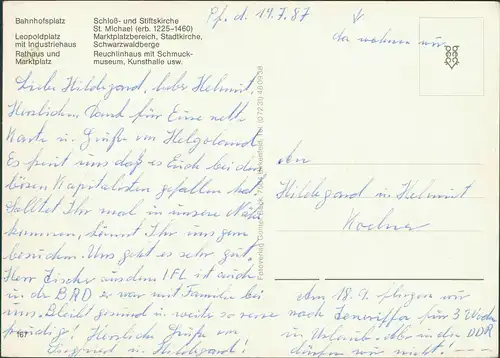 Bahnhofsplatz
Leopoldplatz
mit Industriehaus
Rathaus und
Marktplatz
Schloß- und Stiftskirche
St. Michael (erb. 1225–1460)
Marktplatzbereich, Stadtkirche,
Schwarzwaldberge
Reuchlinhaus mit Schmuck-
museum, Kunsthalle usw.
Pf. d. 19.7.87
da wohnen wir
Liebe Hildegard, lieber Helmut,
Herzlichen Dank für Eure nette
Karte u. Grüße von Helgoland.
Es freut uns daß es Euch bei den
bösen Kapitalisten gefallen hat.
Solltet Ihr mal in unsere Nähe
kommen, könnt Ihr uns gern
besuchen. Uns geht es sehr gut.
Herr Fischer aus dem IFL ist auch
in der BRD er war mit Familie bei
uns. Bleibt gesund u. weite so
freudig! Herzliche Grüße von
Siegfried u. Hildegard!
An
Hildegard u. Helmut
Am 18.9. fliegen wir
nach Teneriffa für 3 Wochen
in Urlaub. Aber in die DDR
dürfen wir nicht!
167